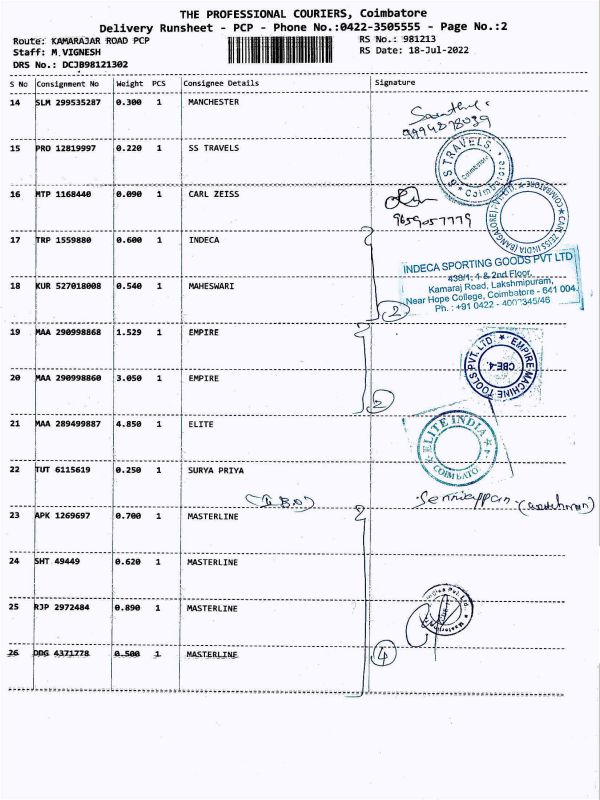 THE PROFESSIONAL COURIERS, Coimbatore
Delivery Runsheet - PCP - Phone No.:0422-3505555 - Page No.:2
Route: KAMARAJAR ROAD PCP RS No.: 981213
Staff: M VIGNESH RS Date: 18-Jul-2022
DRS No.: DCJB98121302
S No Consignment No Weight PCS Consignee Details Signature
14 SLM 299535287 0.300 1 MANCHESTER
15 PRO 12819997 0.220 1 SS TRAVELS
S S TRAVELS
Coimbatore
16 MTP 1168440 0.090 1 CARL ZEISS
9659057779
CARL ZEISS INDIA (BANGALORE)
COIMBATORE
17 TRP 1559880 0.600 1 INDECA
INDECA SPORTING GOODS PVT LTD
438/1, 1 & 2nd Floor,
Kamaraj Road, Lakshmipuram,
Near Hope College, Coimbatore - 641 004.
Ph. : +91 0422 -
18 KUR 527018008 0.540 1 MAHESWARI
2
19 MAA 290998868 1.529 1 EMPIRE
EMPIRE MACHINE TOOLS PVT. LTD.
CBE-4.
20 MAA 290998860 3.050 1 EMPIRE
2
21 MAA 289499887 4.850 1 ELITE
ELITE INDIA
COIMBATO
22 TUT 6115619 0.250 1 SURYA PRIYA
23 APK 1269697 0.700 1 MASTERLINE
24 SHT 49449 0.620 1 MASTERLINE
25 RJP 2972484 0.890 1 MASTERLINE
26 DDG 4371778 0.500 1 MASTERLINE
4